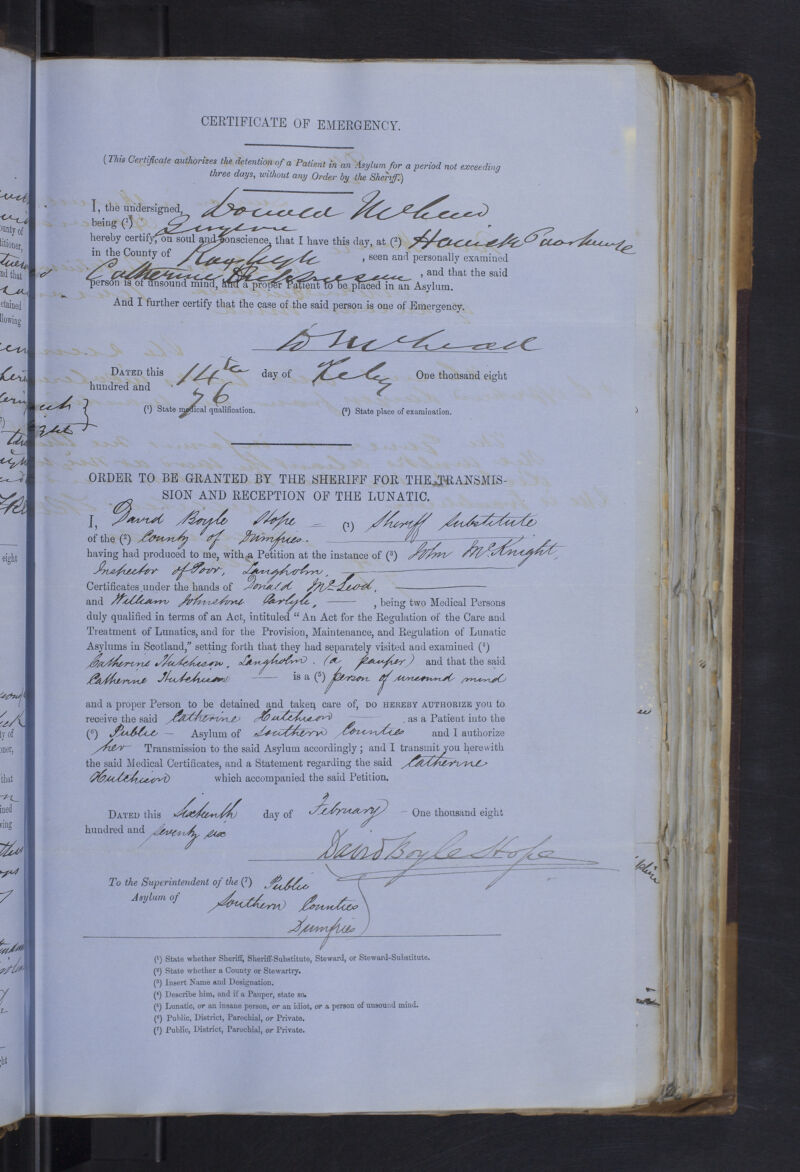 CERTIFICATE OF EMERGENCY.
(This Certificate authorizes the detention of a Patient in an Asylum for a period not exceeding
three days, without any Order by the Sheriff.)
I, the undersigned, Donald McLeod
being (¹) Surgeon
hereby certify, on soul and conscience, that I have this day, at (²) Hawick Poorhouse
in the County of Roxburgh , seen and personally examined
Catherine Hutchinson , and that the said
person is of unsound mind, and a proper Patient to be placed in an Asylum.
And I further certify that the case of the said person is one of Emergency.
D McLeod
DATED this 14th day of Feby One thousand eight
hundred and 76
(¹) State medical qualification. (²) State place of examination.
ORDER TO BE GRANTED BY THE SHERIFF FOR THE TRANSMIS-
SION AND RECEPTION OF THE LUNATIC.
I, David Boyle Hope = (¹) Sheriff Substitute
of the (²) County of Dumfries.
having had produced to me, with a Petition at the instance of (³) John McKnight,
Inspector of Poor, Langholm,
Certificates under the hands of Donald McLeod,
and William Johnstone Carlyle, , being two Medical Persons
duly qualified in terms of an Act, intituled "An Act for the Regulation of the Care and
Treatment of Lunatics, and for the Provision, Maintenance, and Regulation of Lunatic
Asylums in Scotland," setting forth that they had separately visited and examined (⁴)
Catherine Hutchison, Langholm. (a pauper) and that the said
Catherine Hutchison is a (⁵) person of unsound mind
and a proper Person to be detained and taken care of, DO HEREBY AUTHORIZE you to
receive the said Catherine Hutchison as a Patient into the
(⁶) Public - Asylum of Southern Counties and I authorize
her Transmission to the said Asylum accordingly; and I transmit you herewith
the said Medical Certificates, and a Statement regarding the said Catherine
Hutchison which accompanied the said Petition.
DATED this Sixteenth day of February One thousand eight
hundred and seventy six
David Boyle Hope
To the Superintendent of the (⁷) Public
Asylum of Southern Counties
Dumfries
(¹) State whether Sheriff, Sheriff-Substitute, Steward, or Steward-Substitute.
(²) State whether a County or Stewartry.
(³) Insert Name and Designation.
(⁴) Describe him, and if a Pauper, state so.
(⁵) Lunatic, or an insane person, or an idiot, or a person of unsound mind.
(⁶) Public, District, Parochial, or Private.
(⁷) Public, District, Parochial, or Private.